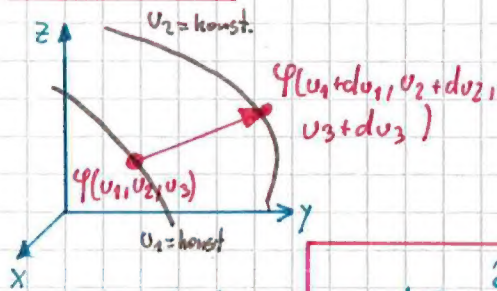 z
u₂=konst.
φ(u₁+du₁, u₂+du₂,
u₃+du₃)
φ(u₁,u₂,u₃)
y
u₁=konst
x